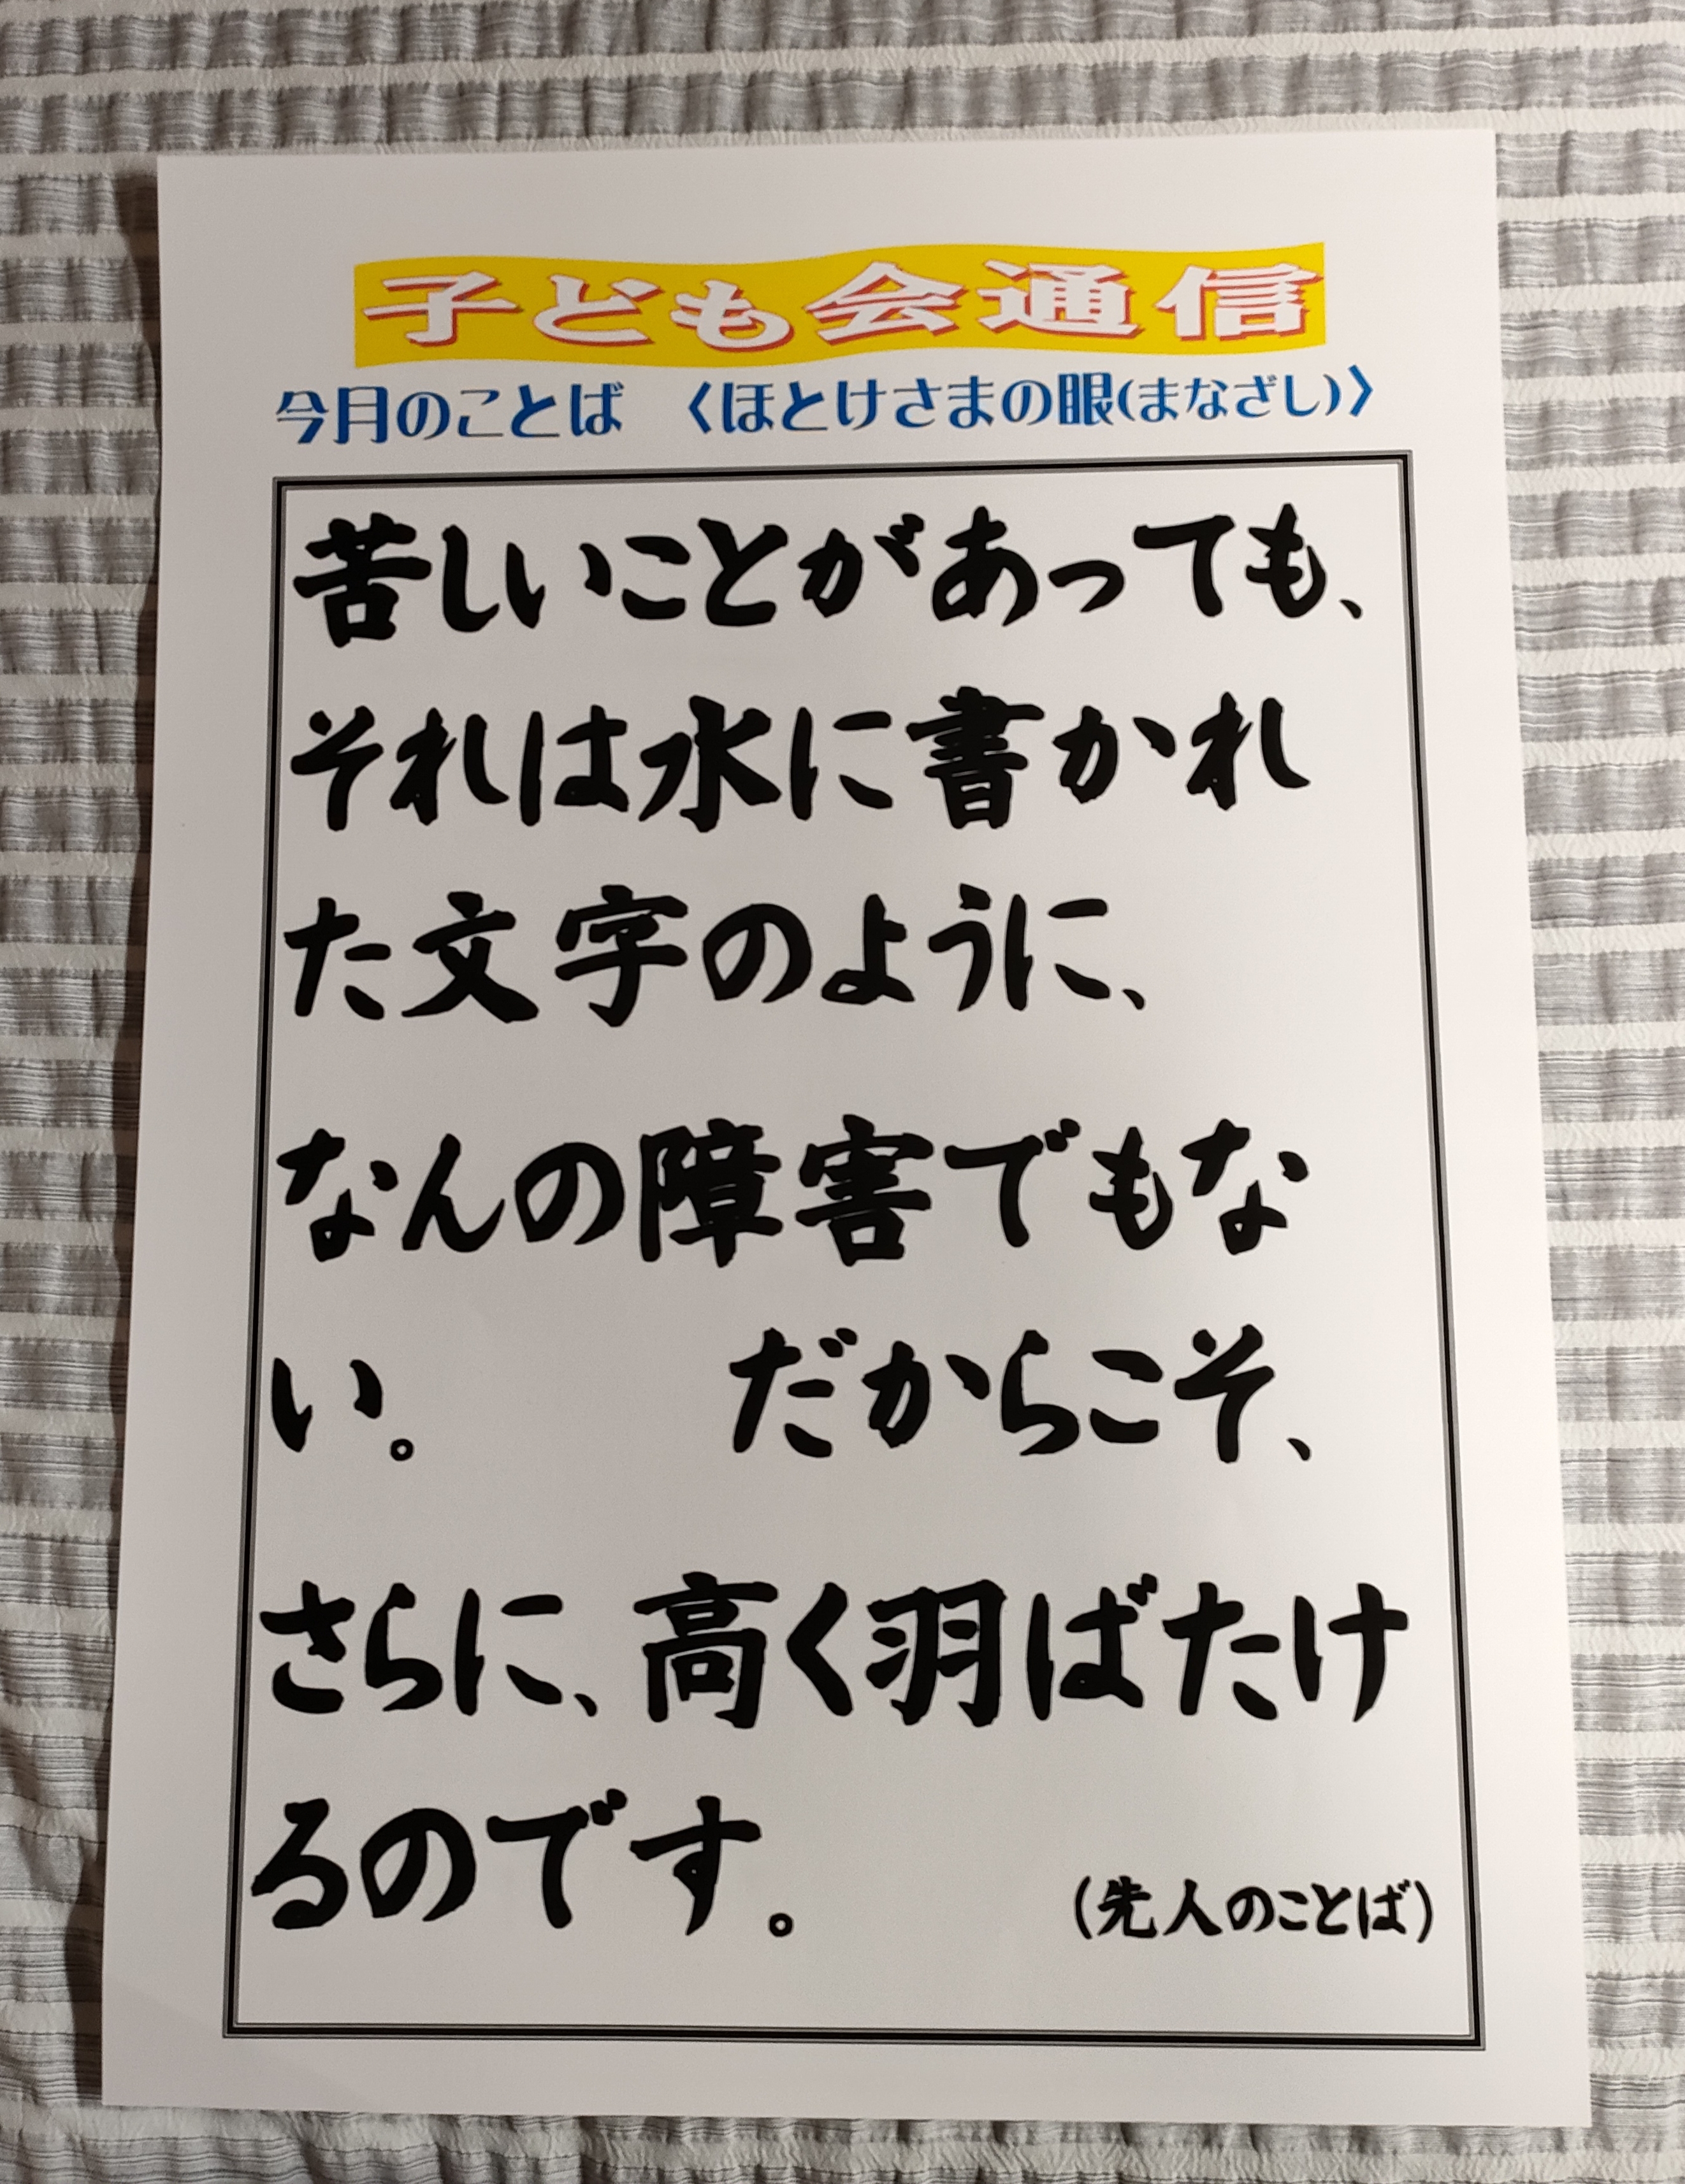 子ども会通信
今月のことば　〈ほとけさまの眼(まなざし)〉
苦しいことがあっても、
それは水に書かれ
た文字のように、
なんの障害でもな
い。　　だからこそ、
さらに、高く羽ばたけ
るのです。　　(先人のことば)